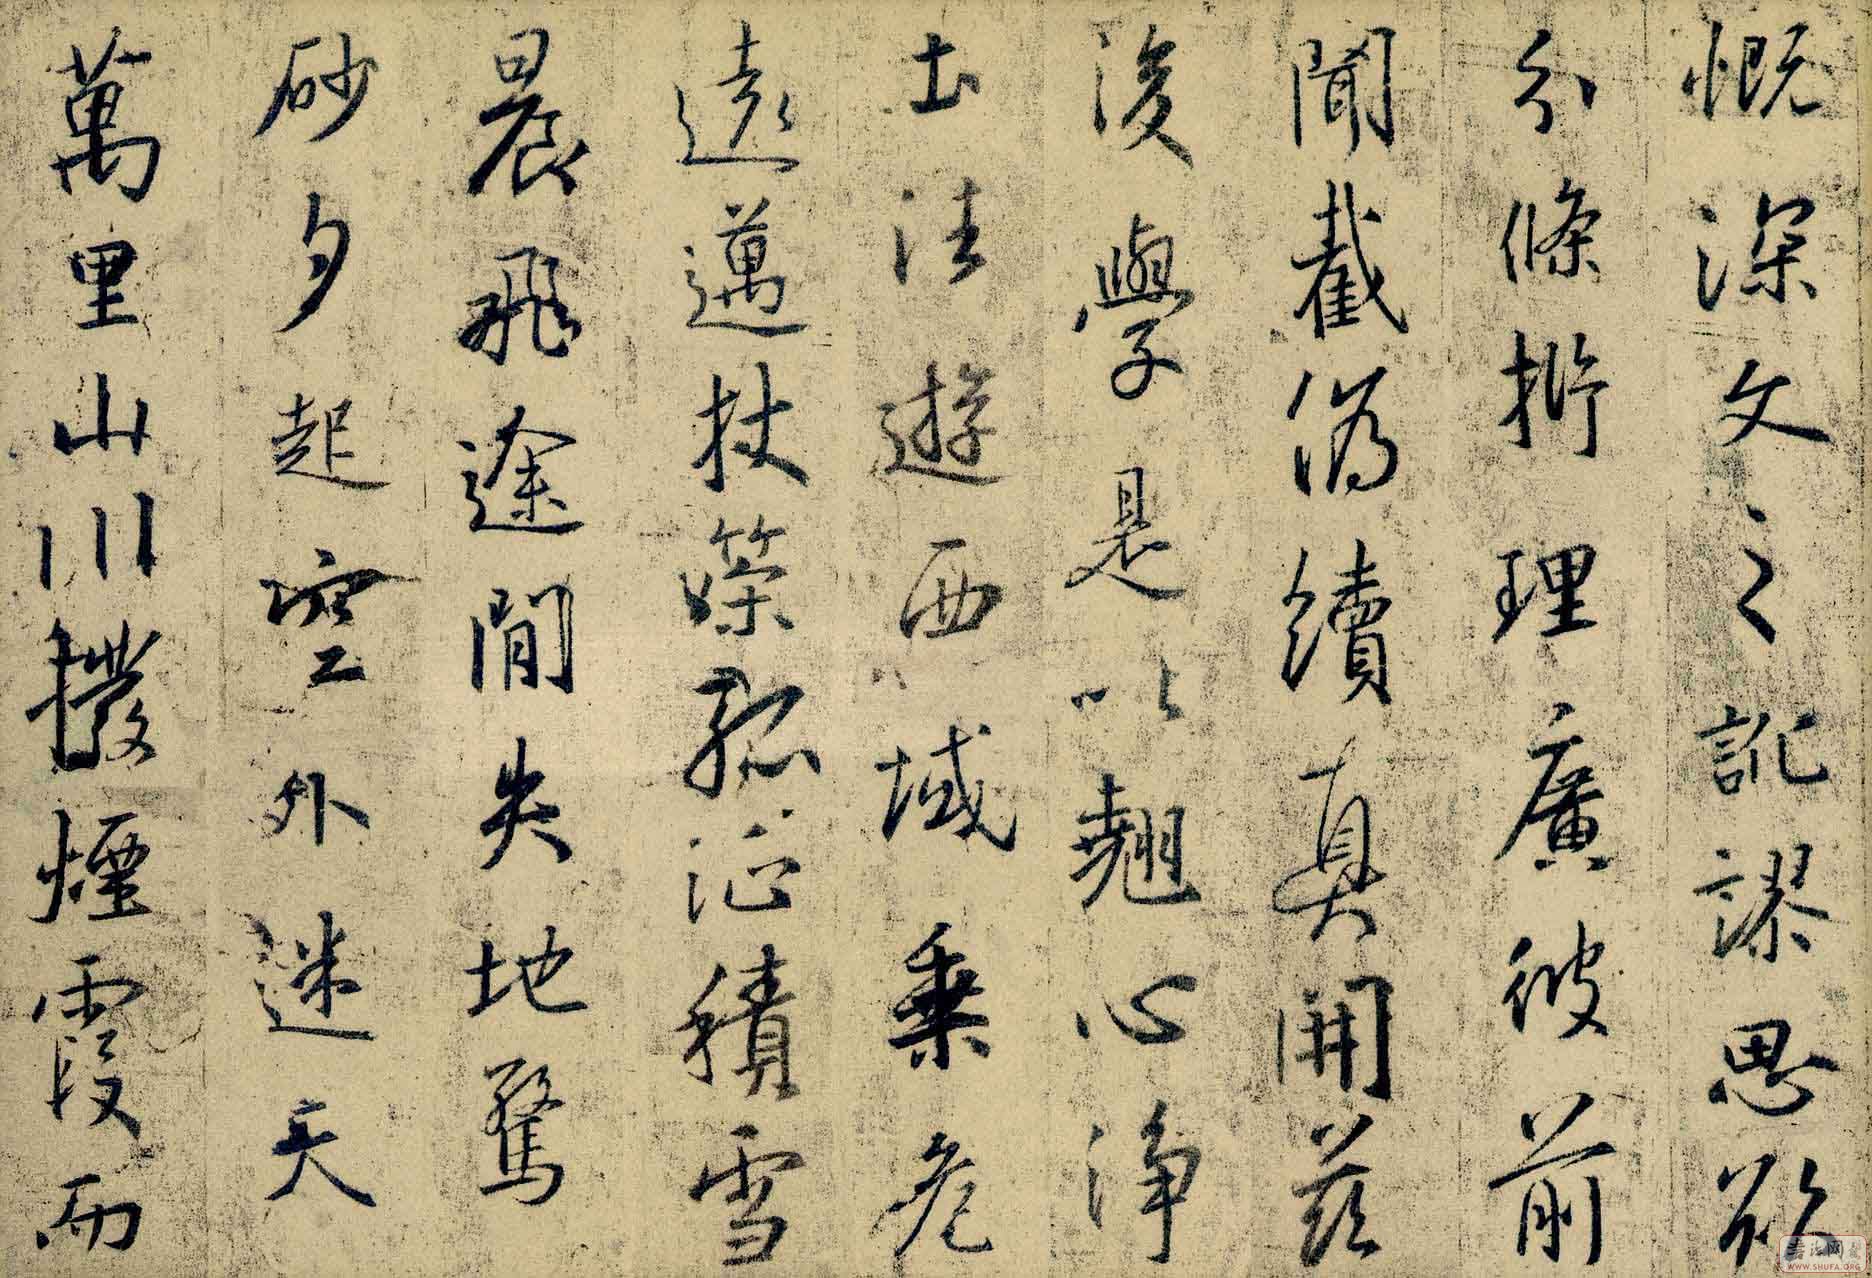 慨深文之訛謬思欲
分條析理廣彼前
聞截偽續真開茲
後學是以翹心淨
土往遊西域乘危
遠邁杖策孤征積雪
晨飛途間失地驚
砂夕起空外迷天
萬里山川撥煙霞而
WWW.SHUFA.ORG